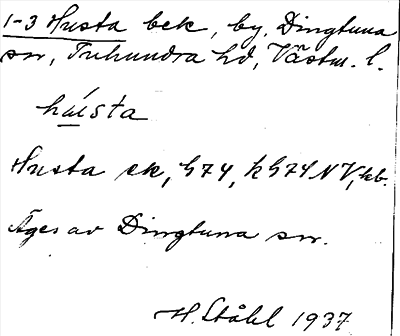 1-3 Husta bek, by, Dingtuna
sn, Tuhundra hd, Västm. l.
hústa
Husta ek, h74, kh74 NV, kb.
Äges av Dingtuna sn.
H. Ståhl 1937